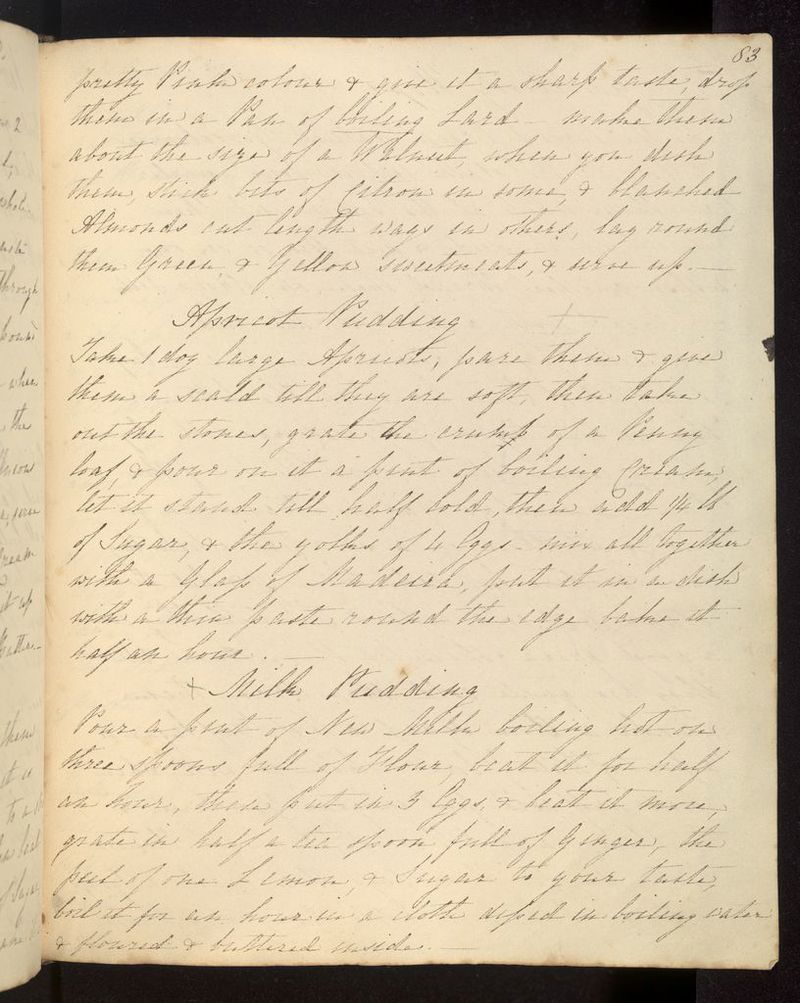 83
pretty Pink colour & give it a sharp taste, drop
them in a Pan of boiling Lard - make them
about the size of a Walnut, when you dish
them, stick bits of Citron in some, & blanched
Almonds cut length ways in others, lay round
them Green & Yellow sweetmeats, & serve up. —
Apricot Pudding +
Take 1 doz large Apricots, pare them & give
them a scald till they are soft, then take
out the stones, grate the crumb of a Penny
loaf, & pour on it a pint of boiling Cream,
let it stand till half cold, then add 1/4 lb
of Sugar, & the yolks of 4 Eggs - mix all together
with a Glass of Madeira, put it in a dish
with a thin paste round the edge bake it
half an hour. —
+ Milk Pudding
Pour a pint of New Milk boiling hot on
three spoons full of Flour, beat it for half
an hour, then put in 3 Eggs, & beat it more,
grate in half a tea spoon full of Ginger, the
peel of one Lemon, & Sugar to your taste,
boil it for an hour in a cloth diped in boiling water
& floured & buttered inside. —